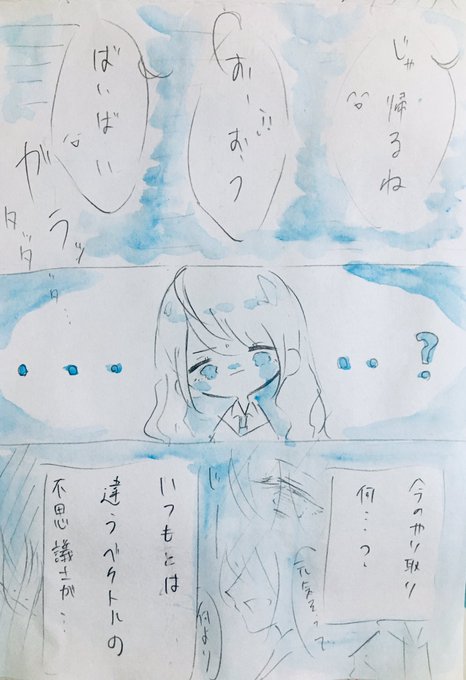 じゃ
帰るね
おーおぅ
ばいばい
ガラッ
タッタッタ…
・・・・・?
今のやり取り
何…っ
元気そって
何より
いつもとは
違うベクトルの
不思議さが…